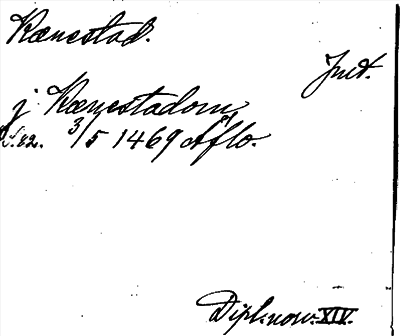 Rænestad.
Jnd.
j Rænestadom,
S. 82. 3/5 1469 Afl o.
Dipl. norv. XIV.